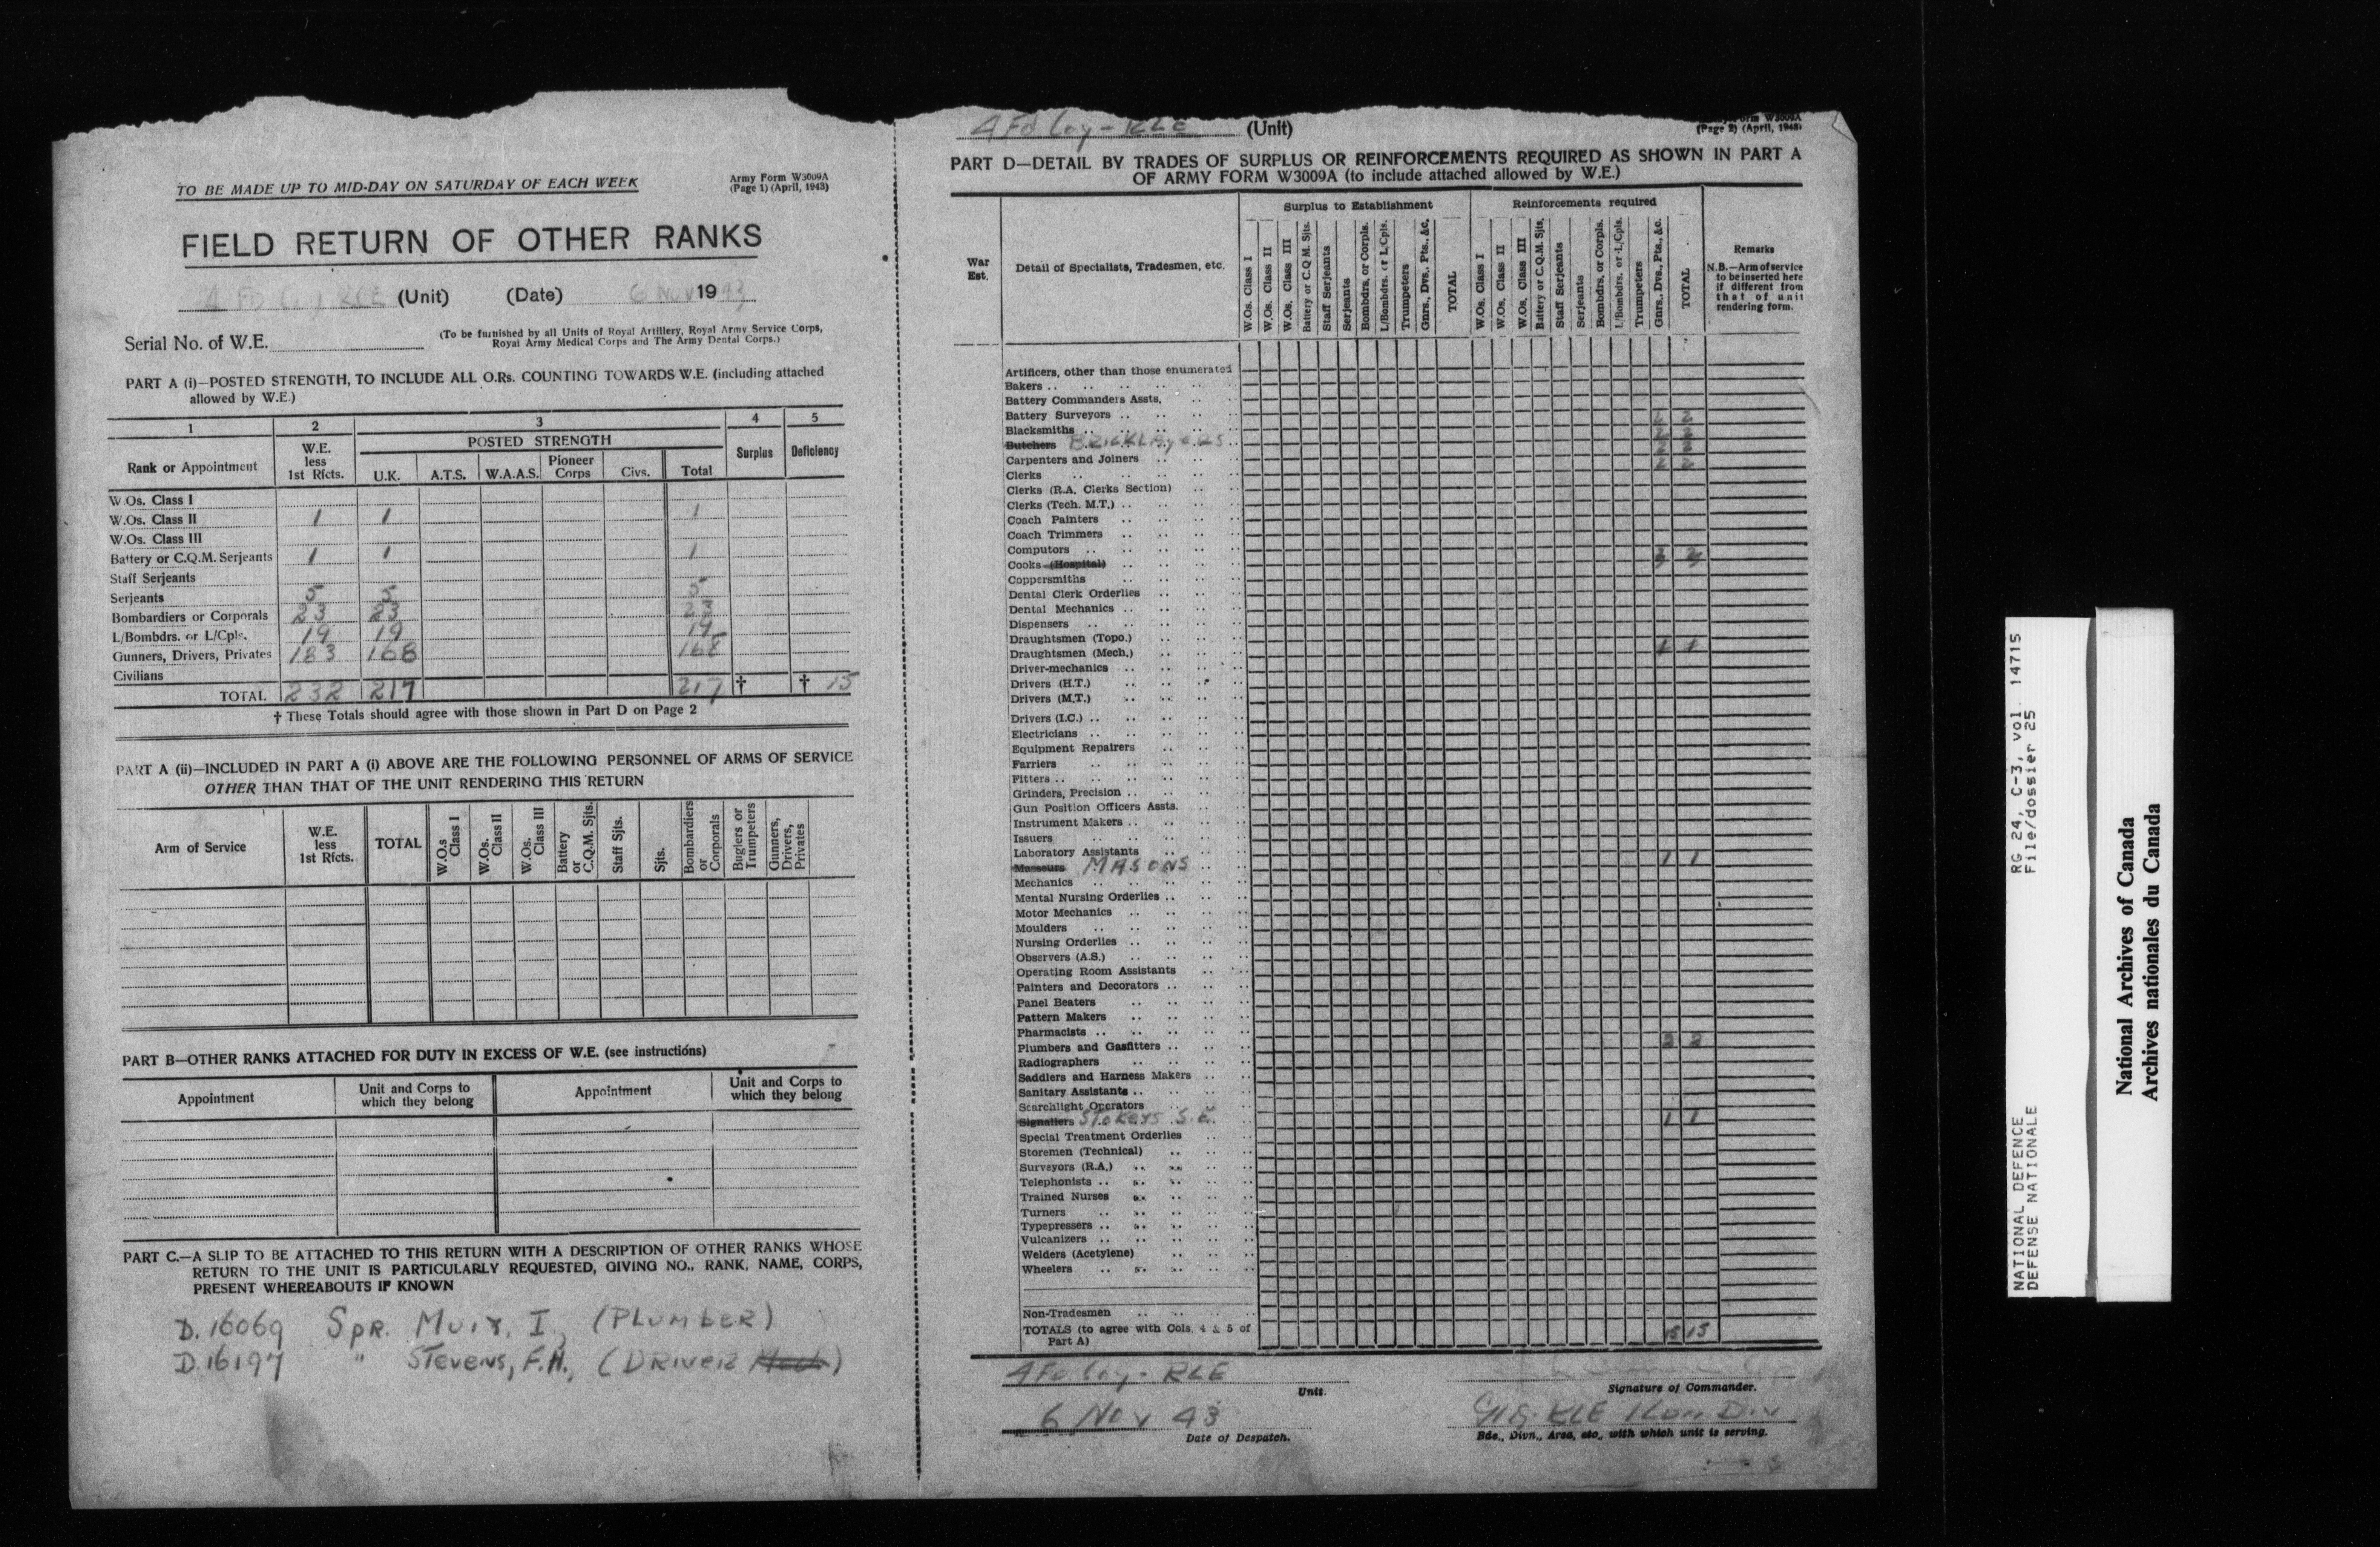 TO BE MADE UP TO MID-DAY ON SATURDAY OF EACH WEEK
Army Form W3009A
(Page 1) (April, 1943)
FIELD RETURN OF OTHER RANKS
4 FD Coy RCE (Unit) (Date) 6 NOV 1943
Serial No. of W.E.
(To be furnished by all Units of Royal Artillery, Royal Army Service Corps,
Royal Army Medical Corps and The Army Dental Corps.)
PART A (i)—POSTED STRENGTH, TO INCLUDE ALL O.Rs. COUNTING TOWARDS W.E. (including attached
allowed by W.E.)
1 2 3 4 5
Rank or Appointment W.E. less 1st Rfcts. POSTED STRENGTH Surplus Deficiency
U.K. A.T.S. W.A.A.S. Pioneer Corps Civs. Total
W.Os. Class I
W.Os. Class II 1 1 1
W.Os. Class III
Battery or C.Q.M. Serjeants 1 1 1
Staff Serjeants
Serjeants 5 5 5
Bombardiers or Corporals 23 23 23
L/Bombdrs. or L/Cpls. 19 19 19
Gunners, Drivers, Privates 183 168 168
Civilians
TOTAL 232 217 217 † † 15
† These Totals should agree with those shown in Part D on Page 2
PART A (ii)—INCLUDED IN PART A (i) ABOVE ARE THE FOLLOWING PERSONNEL OF ARMS OF SERVICE
OTHER THAN THAT OF THE UNIT RENDERING THIS RETURN
Arm of Service W.E. less 1st Rfcts. TOTAL W.O.s Class I W.Os. Class II W.Os. Class III Battery or C.Q.M. Sjts. Staff Sjts. Sjts. Bombardiers or Corporals Buglers or Trumpeters Gunners, Drivers, Privates
PART B—OTHER RANKS ATTACHED FOR DUTY IN EXCESS OF W.E. (see instructions)
Appointment Unit and Corps to which they belong Appointment Unit and Corps to which they belong
PART C.—A SLIP TO BE ATTACHED TO THIS RETURN WITH A DESCRIPTION OF OTHER RANKS WHOSE
RETURN TO THE UNIT IS PARTICULARLY REQUESTED, GIVING NO., RANK, NAME, CORPS,
PRESENT WHEREABOUTS IF KNOWN
D.16069 Spr. Muir, I., (PLUMBER)
D.16197 " Stevens, F.H., (DRIVER Mech)
4 Fd Coy - RCE (Unit)
Army Form W3009A
(Page 2) (April, 1943)
PART D—DETAIL BY TRADES OF SURPLUS OR REINFORCEMENTS REQUIRED AS SHOWN IN PART A
OF ARMY FORM W3009A (to include attached allowed by W.E.)
War Est. Detail of Specialists, Tradesmen, etc. Surplus to Establishment Reinforcements required Remarks
W.Os. Class I W.Os. Class II W.Os. Class III Battery or C.Q.M. Sjts. Staff Serjeants Serjeants Bombdrs. or Corpls. L/Bombdrs. or L/Cpls. Trumpeters Gnrs., Dvs., Pts., &c. TOTAL
W.Os. Class I W.Os. Class II W.Os. Class III Battery or C.Q.M. Sjts. Staff Serjeants Serjeants Bombdrs. or Corpls. L/Bombdrs. or L/Cpls. Trumpeters Gnrs., Dvs., Pts., &c. TOTAL
N.B.—Arm of service to be inserted here if different from that of unit rendering form.
Artificers, other than those enumerated
Bakers
Battery Commanders Assts.
Battery Surveyors
Blacksmiths 2 2
Butchers BRICKLAYERS 2 2
Carpenters and Joiners 2 2
Clerks 2 2
Clerks (R.A. Clerks Section)
Clerks (Tech. M.T.)
Coach Painters
Coach Trimmers
Computors
Cooks (Hospital)
Coppersmiths
Dental Clerk Orderlies
Dental Mechanics
Dispensers
Draughtsmen (Topo.)
Draughtsmen (Mech.) 1 1
Driver-mechanics
Drivers (H.T.)
Drivers (M.T.)
Drivers (I.C.)
Electricians
Equipment Repairers
Farriers
Fitters
Grinders, Precision
Gun Position Officers Assts.
Instrument Makers
Issuers
Laboratory Assistants
Masseurs MASONS 1 1
Mechanics
Mental Nursing Orderlies
Motor Mechanics
Moulders
Nursing Orderlies
Observers (A.S.)
Operating Room Assistants
Painters and Decorators
Panel Beaters
Pattern Makers
Pharmacists
Plumbers and Gasfitters 2 2
Radiographers
Saddlers and Harness Makers
Sanitary Assistants
Searchlight Operators
Signallers Stokers S.E. 1 1
Special Treatment Orderlies
Storemen (Technical)
Surveyors (R.A.)
Telephonists
Trained Nurses
Turners
Typepressers
Vulcanizers
Welders (Acetylene)
Wheelers
Non-Tradesmen
TOTALS (to agree with Cols. 4 & 5 of Part A) 15 15
4 Fd Coy - RCE
Unit.
Signature of Commander.
6 Nov 43
Date of Despatch.
RCE 1 Can Div
Bde., Divn., Area, etc., with which unit is serving.
NATIONAL DEFENCE RG 24, C-3, vol. 14715
DEFENSE NATIONALE File/dossier 25
National Archives of Canada
Archives nationales du Canada